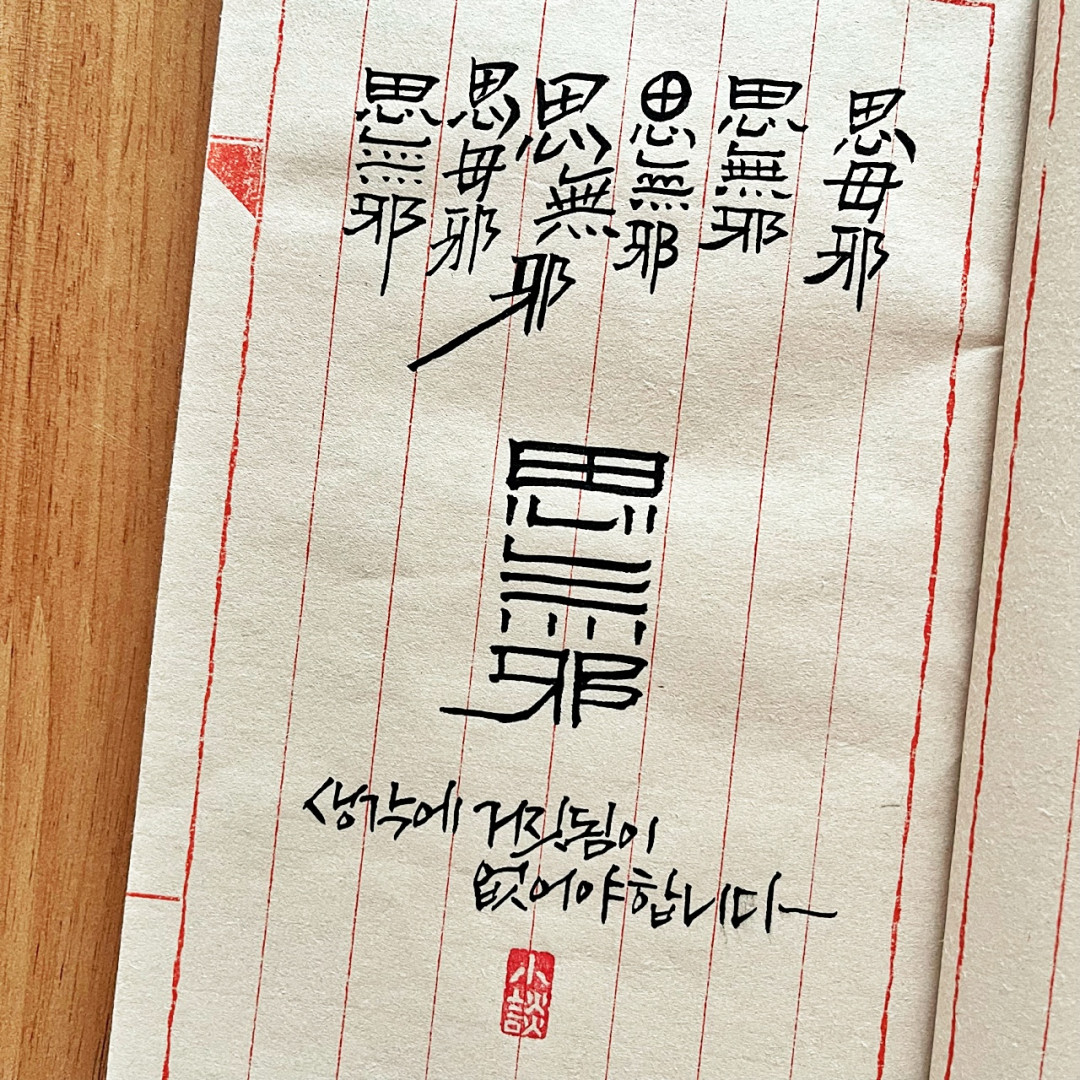 思無邪
思毋邪
思無邪
思無邪
思無邪
思毋邪
思無邪
생각에 거짓됨이
없어야합니다~
小談